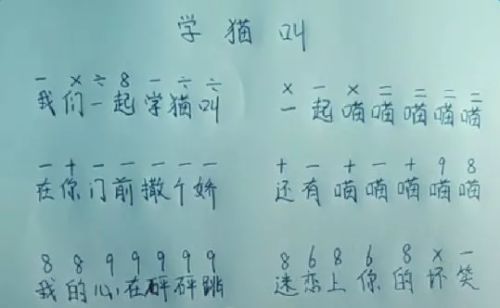 学猫叫
− × ÷ 8 − ÷ ÷ × − × = = = =
我们一起学猫叫 一起喵喵喵喵喵
− + − − − − − + − + − + 9 8
在你门前撒个娇 还有喵喵喵喵喵
8 8 9 9 9 9 9 8 6 8 6 8 × −
我的心在砰砰跳 迷恋上你的坏笑